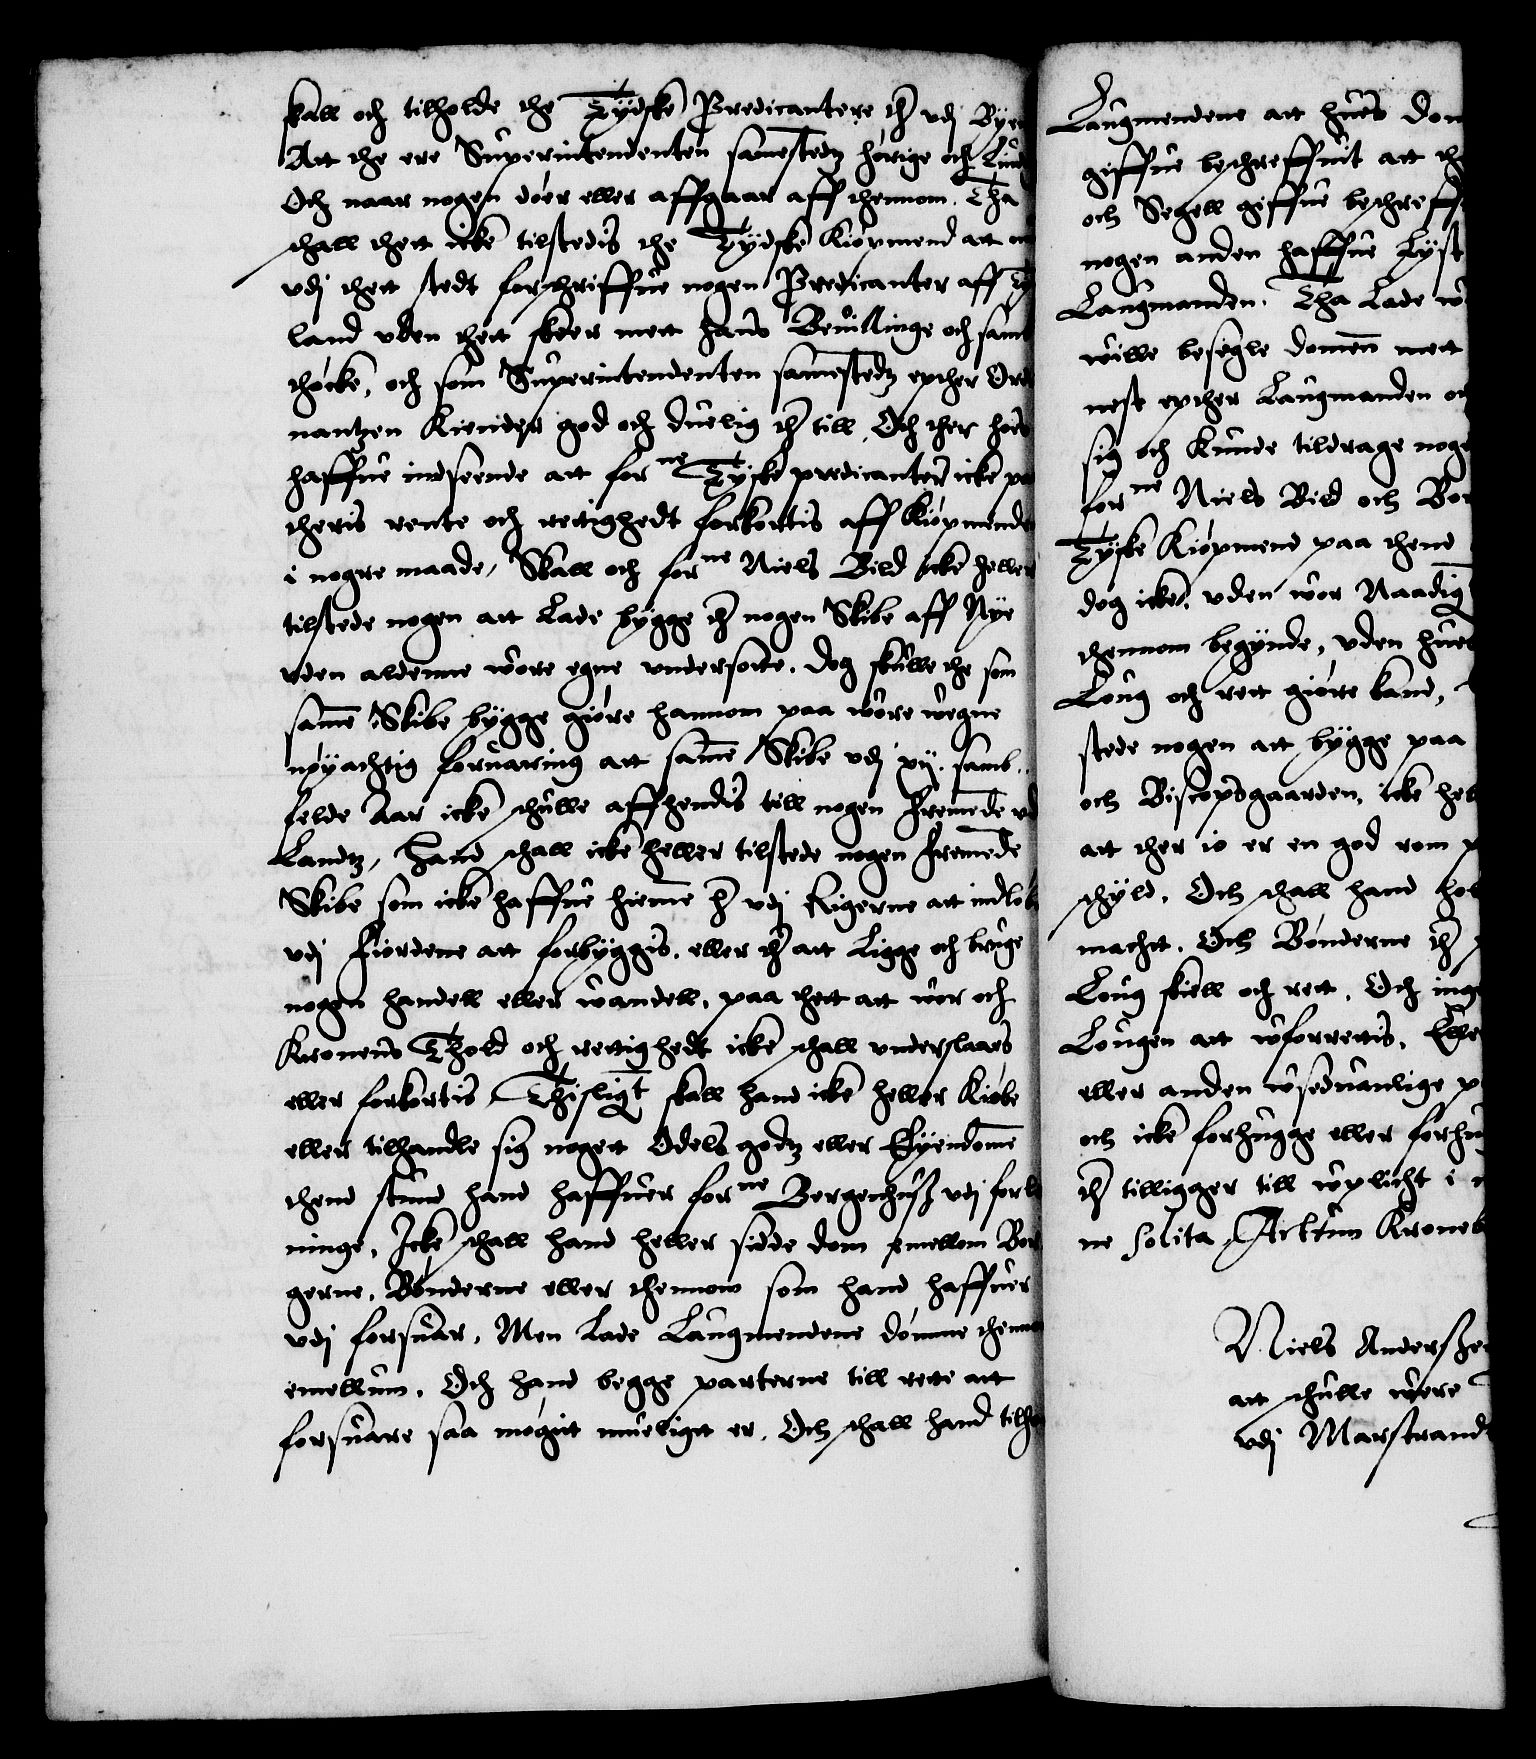 skall och tilholde the Tydske Predicantere ther udj Byen
Att the ere Superintendenten samestedz hørige och Lud
Och naar nogen døer eller affgaar aff thennom. Tha
schall thett icke tilstedis the Tydske Kiøpmend att
udj thett stedt forschriffue nogen Predicanter aff Ty
land uden thett skeer mett hans Beuillinge och sam
thøcke, och som Superintendenten samestedz epther Ord
nantzen Kiender god och duelig ther till, Och ther hoes
haffue indseende att forne Tyske predicanter icke paa
theris rente och rettighedt forkortis aff Kiøpmende
i nogre maade, Skall och forne Niels Bild icke heller
tilstede nogen att Lade bygge ther nogen Skibe aff Nye
uden aldenne wore egne undersotte. Dog skulle the som
same Skibe bygge giøre hannom paa wore wegne
nøyachtig foruaring att same Skibe udj xij. samb..
felde Aar icke schulle affhendis till nogen fremede ud
Landz, Hand schall icke heller tilstede nogen fremede
Skibe som icke haffue hieme her udj Rigerne att indløbe
udj fiordene att forbyggis, eller ther att Ligge och bruge
nogen handell eller wandell, paa thett att wor och
Kronens Thold och rettighedt icke schall underslaaes
eller forkortis, Thisligt skall hand icke heller Kiøbe
eller tilhandle sig nogett Odels godz eller Eyendome
thend stund hand haffuer forne Bergenhusz udj forle
ninge, Icke schall hand heller sidde dom emellom Bor
gerne, Bønderne eller thennom som hand haffuer
udj forsuar, Men Lade Laugmendene dømme thennom
emellum, Och hand begge parterne till rette att
forsuare saa mögit mueligt er, Och schall hand tilho
Laugmendene att hues dom
giffue beschreffuit att the
och Segell giffue beschreff
nogen anden haffue Lyst
Laugmanden. Tha Lade w
wille besegle domenn mett
nest epther Laugmanden och
sig och kunde tildrage noge
forne Niels Bild och Bor
Tyske Kiøpmend paa thend
dog icke, uden wor Naadig
thennom begynde, uden hues
Loug och rett giøre kand,
stede nogen att bygge paa
och Biscopsgaarden, icke hel
att ther io er en god rom
schyld, Och schall hand hol
macht, Och Bønderne ther
Loug skiell och rett, Och inge
Lougen att wforrettis, Elle
eller anden wseduanlige p
och icke forhugge eller forhu
ther tilligger till wplicht i
ne solita, Actum Kroneb
Niels Anderszen
att schulle were
udj Marstrand